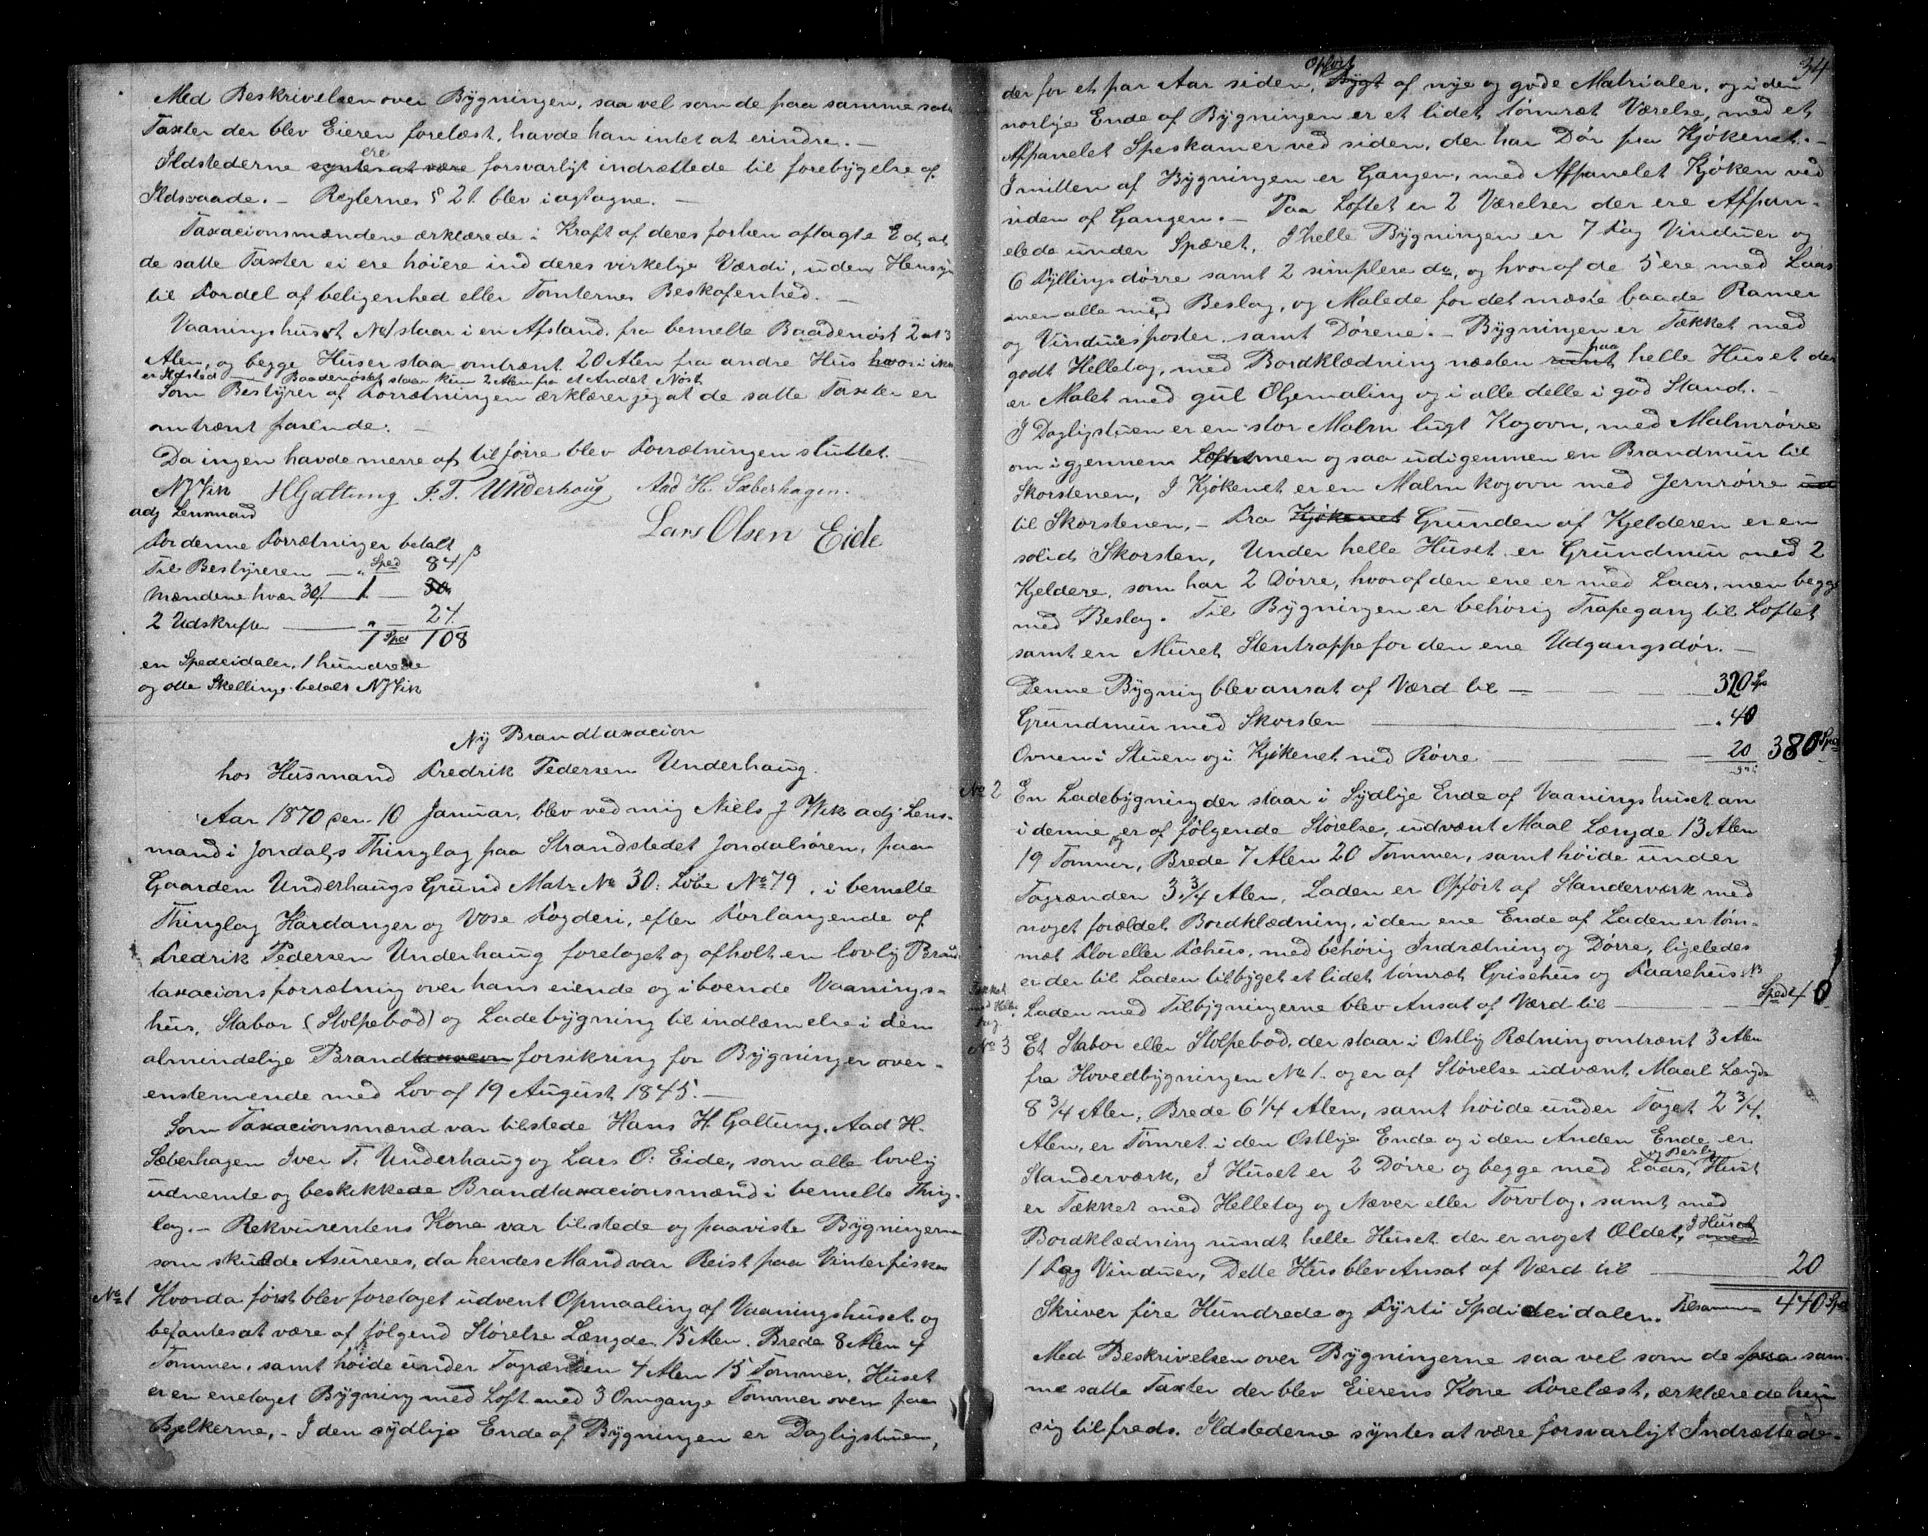 Med Beskrivelsen over Bygningen, saa vel som de paa samme satte
Taxter der blev Eieren forelæst, havde han intet at erindre. —
Ildstederne syntes at være ere forsvarligt indrættede til forebygelse af
Ildsvaade. — Reglernes § 21. blev iagtagne. —
Taxacionsmændene ærklærede i Kraft af deres forhen aflagte Ed, at
de satte Taxter ei ere høiere ind deres virkelige Værdi, uden Hensyn
til Fordel af beligenhed eller Tomternes Beskafenhed. —
Vaaningshuset No 1 staar i en Afstand, fra bemelte Baadenøst 2 at 3
Alen, og begge Huser staar omtrent 20 Alen fra andre Hus hvori ikke
er Ildsted Baadenøstet staar kun 2 Alen fra et Andet Nøst
Som Bestyrer af Forrætningen ærklærer jeg at de satte Taxter er
omtrent pasende. —
Da ingen havde merre at tilføire blev Forrætningen sluttet. —
N J Vik H Galtung I. T. Underhoug Aad H. Sæberhagen.
adj Lensmand
Lars Olsen Eide
For denne Forrætninger betalt
Til Bestyreren — " Sped 84 ß
Mændene hvær 30 ß 1 — 30
2 Udskrifter — " — 24
1 Sped 108
en Spedeidaler, 1 hundrede
og otte Skellinge betalt N J Vik
Ny Brandtaxacion
hos Husmand Fredrik Pedersen Underhaug.
Aar 1870 den 10 Januar, blev ved mig Niels J Wik adj Lens-
mand i Jondals Thinglag paa Strandstedet Jondalsøren, paa
Gaarden Underhaugs Grund Matr No 30: Løbe No 79, i bemelte
Thinglag Hardanger og Vose Fogderi, efter Forlangende af
Fredrik Pedersen Underhaug foretaget og afholt en lovlig Brand
taxacions forrætning over hans eiende og iboende Vaanings-
hus, Stabor (Stolpebod) og Ladebygning til indlæmelse i den
almindelige Brandtaxacion forsikring for Bygninger over-
enstemende med Lov af 19 August 1845. —
Som Taxacionsmænd var tilstede Hans H. Galtung, Aad H.
Sæberhagen Iver T. Underhaug og Lars O: Eide, som alle lovlig
udnemte og beskikkede Brandtaxacionsmænd i bemelte Thing-
lag. — Rekvirentens Kone var tilstede og paaviste Bygningerne
som skulde Asureres, da hendes Mand var Reist paa Vinterfiske
No 1 Hvorda først blev foretaget udvent Opmaaling af Vaaningshuset og
befantes at være af følgend Størelse Længde 15 Alen. Brede 8 Alen 4
Tommer, samt høide under Tagrænden 4 Alen 15 Tommer, Huset
er en enetaget Bygning med Loft med 3 Omgange Tømmer oven paa
Bjelkerne, — I den sydlige Ende af Bygningen er Dagligstuen,
34
der for et par Aar siden, Bygt Opført af nye og gode Matrialer, og i den
norlige Ende af Bygningen er et lidet tømræt Værelse, med et
Afpanelet Speskamer ved siden, der har Dør fra Kjøkenet. —
I mitten af Bygningen er Gangen, med Afpanelet Kjøken ved
siden af Gangen. — Paa Loftet er 2 Værelser der ere Afpan-
elede under Spæret, I helle Bygningen er 7 Fag Vinduer og
6 Fyllingsdørre samt 2 simplere do, og hvoraf de 5 ere med Laas
men alle med Beslag, og Malede for det mæste baade Ramer
og Vinduesposter samt Dørene. — Bygningen er Tækket med
godt Hellelag, med Bordklædning næsten rundt paa helle Huset der
er Malet med gul Oljemaling og i alle delle i god Stand. —
I Dagligstuen er en stor Malm lugt Kogovn, med Malmrørre
om igjennem Loftet men og saa udigenmen en Brandmur til
Skorstenen, I Kjøkenet er en Malm kogovn med Jernrørre ud
til Skorstenen, — Fra Kjøkenet Grunden af Kjelderen er en
solid Skorsten, Under helle Huset er Grundmur med 2
Kjeldere, som har 2 Dørre, hvoraf den ene er med Laas, men begge
med Beslag. Til Bygningen er behørig Trapegang til Loftet
samt en Muret Stentrappe for den ene Udgangsdør. —
Denne Bygning blev ansat af Værd til — 320 Sp
Grundmur med Skorsten — " 40
Ovnen i Stuen og i Kjøkenet med Rørre — 20 380 Sped
No 2 En Ladebygning der staar i Sydlige Ende af Vaaningshuset an
i denne og er af følgende Størelse, udvent Maal Længde 13 Alen
19 Tommer, Brede 7 Alen 20 Tommer, samt høide under
Tagrænden 3 3/4 Alen, Laden er Opført af Standerværk med
noget forældet Bordklædning, i den ene Ende af Laden er tøm-
ræt Flor eller Fæhus, med behørig Indrætning og Dørre, ligeledes
er der til Laden tilbyget et lidet tømræt Grisehus og Faarehus
Tækket med Helle tag. Laden med Tilbygningerne blev Ansat af Værd til — Sped 40
No 3 Et Stabor eller Stolpebod, der staar i Østlig Rætning omtrent 3 Alen
fra Hovedbygningen No 1. og er af Størelse udvent Maal Længde
8 3/4 Alen, Brede 6 1/4 Alen, samt høide under Taget 2 3/4
Alen, er Tømret i den Østlige Ende og i den Anden Ende er
Standerværk, I Huset er 2 Dørre og begge med Laas, og Beslag Huset
er Tækket med Helletag og Næver eller Torvtag, samt med
Bordklædning rundt helle Huset der er noget Ældet, med I Huset
1 Fag Vinduer, Dette Hus blev Ansat af Værd til — 20
Skriver fire Hundrede og Fyrti Spdeidaler. Tilsammen 440 Sped
Med Beskrivelsen over Bygningerne saa vel som de paa sam-
me satte Taxter der blev Eierens Kone Forelæst, ærklærede hun
sig tilfreds. Ildstederne syntes at være forsvarligt Indrættede.